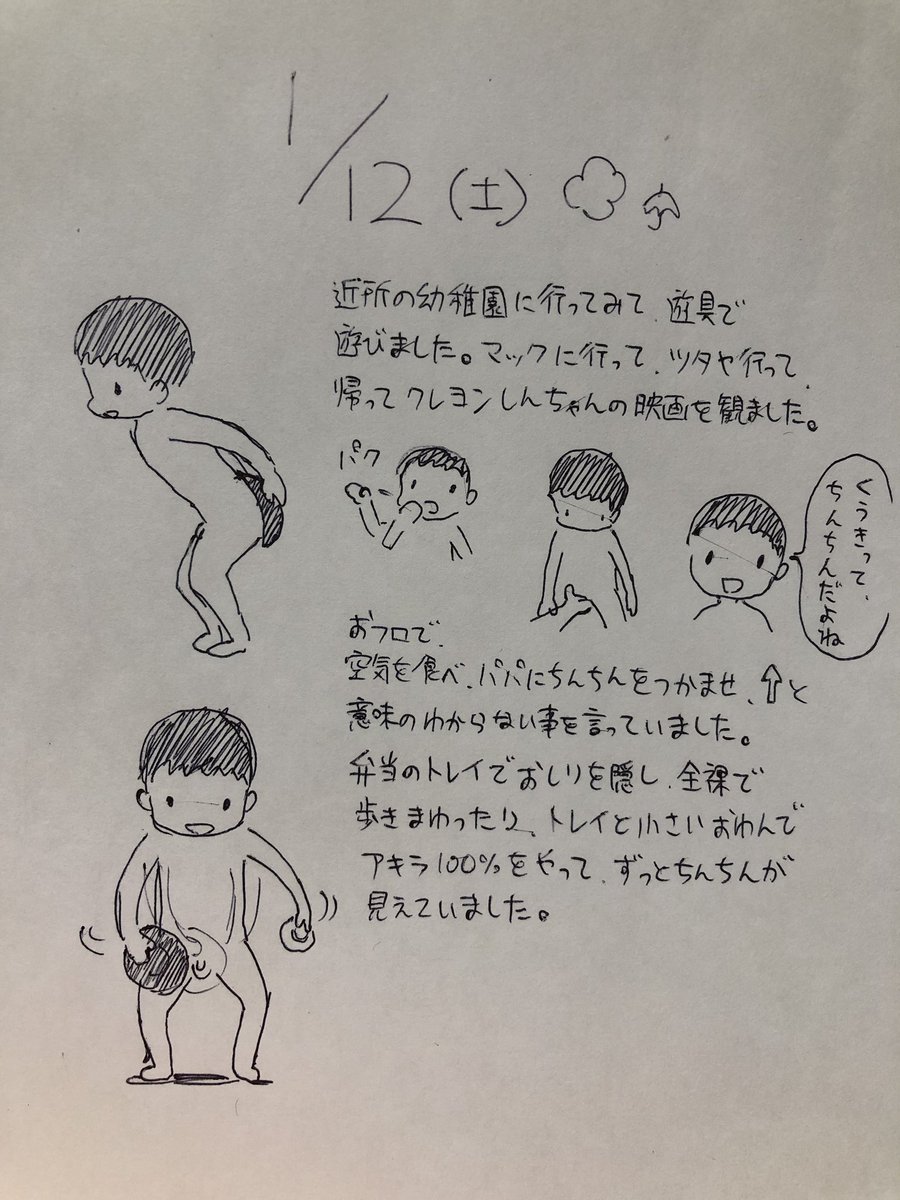 1/12(土)
近所の幼稚園に行ってみて、遊具で
遊びました。マックに行って、ツタヤ行って、
帰ってクレヨンしんちゃんの映画を観ました。
パク
くうきって、
ちんちんだよね
おフロで、
空気を食べ、パパにちんちんをつかませ、⇧と
意味のわからない事を言っていました。
弁当のトレイでおしりを隠し、全裸で
歩きまわったり、トレイと小さいおわんで
アキラ100%をやって、ずっとちんちんが
見えていました。